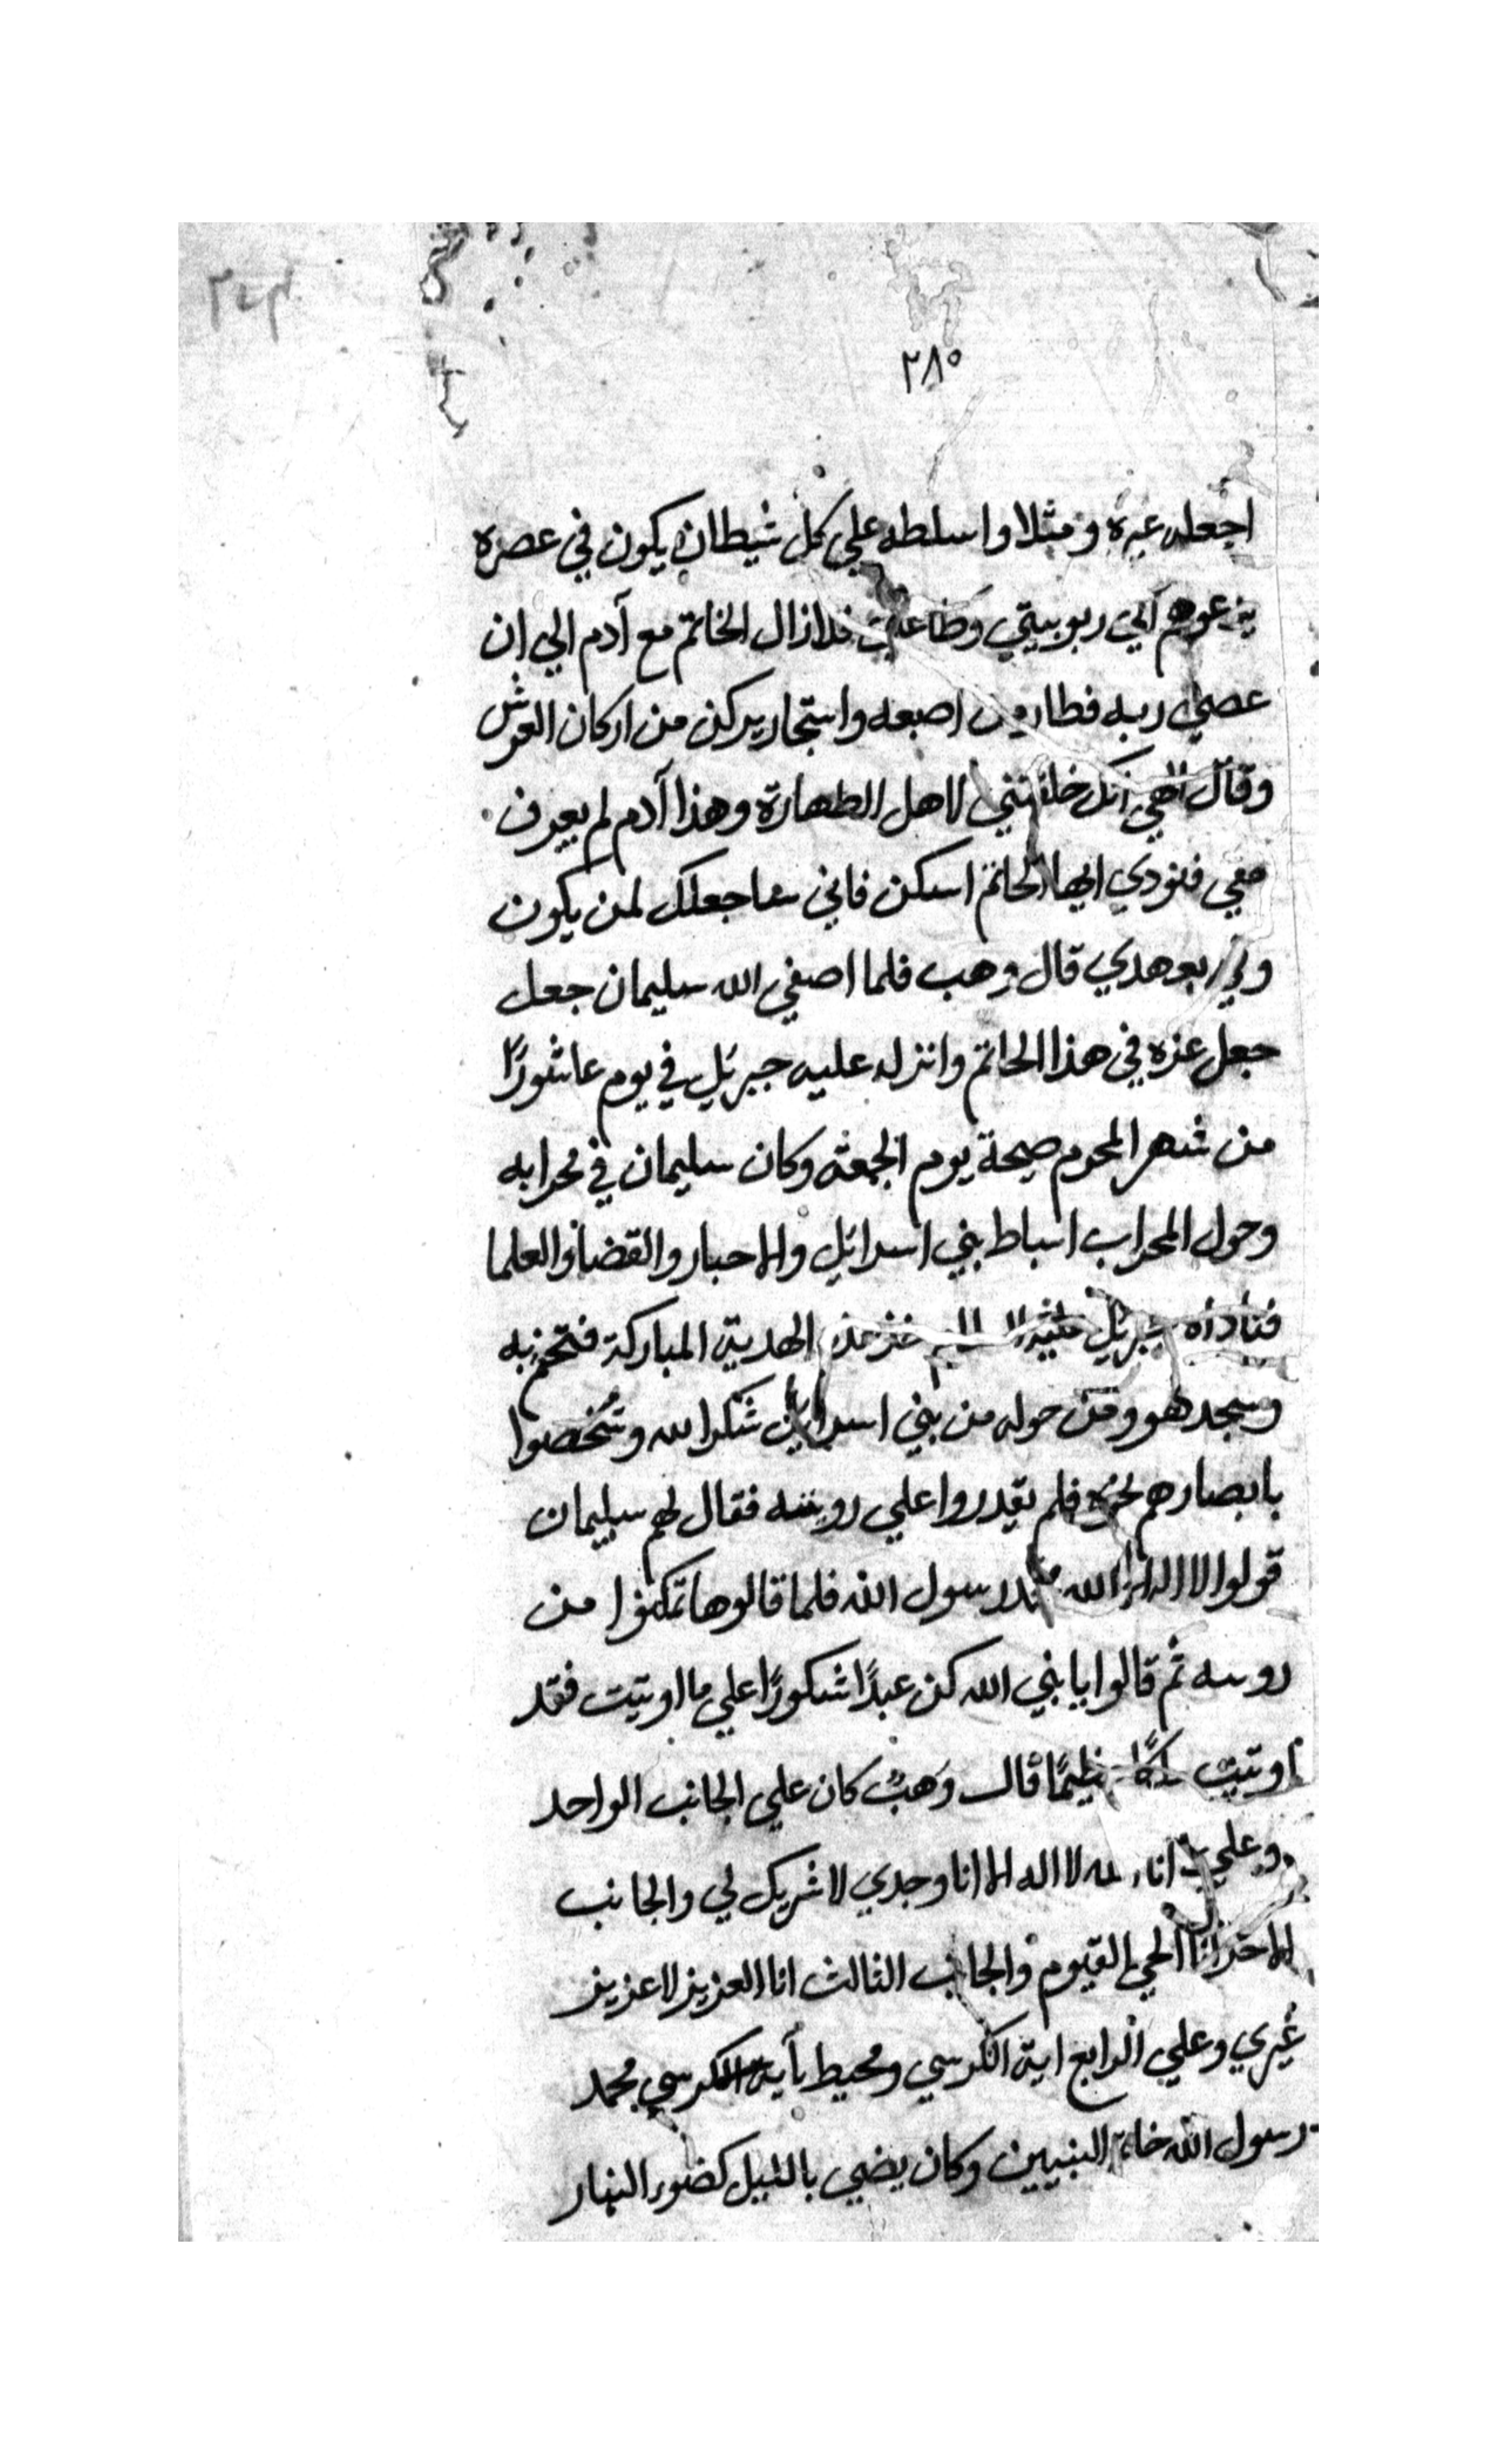 ٢٨٥
اجعله عبرة ومثلا واسلطه علي كل شيطان يكون في عصره
يدعوهم الي ربوبيتي وطاعتي فلازال الخاتم مع آدم الي ان
عصي ربه فطار من اصبعه واستجار بركن من اركان العرش
وقال الهي انك خلقتني لاهل الطهارة وهذا آدم لم يعرف
حقي فنودي ايها الخاتم اسكن فاني ساجعلك لمن يكون
وفي بعهدي قال وهب فلما اصفي الله سليمان جعل
جعل عزه في هذا الخاتم وانزله عليه جبريل في يوم عاشورًا
من شهر المحرم صبيحة يوم الجمعة وكان سليمان في محرابه
وحول المحراب اسباط بني اسرائيل والاحبار والقضاة والعلما
فناداه جبريل عليه السلام خذ هذه الهدية المباركة فتختم به
وسجد هو ومن حوله من بني اسرايل شكرا لله وشخصوا
بابصارهم نحوه فلم يقدروا علي رويته فقال لهم سليمان
قولوا لا اله الا الله محمد رسول الله فلما قالوها تمكنوا من
رويته ثم قالوا يا نبي الله كن عبدًا شكورًا علي ما اوتيت فقد
اوتيت ملكًا عظيمًا قال وهب كان علي الجانب الواحد
انا الله لا اله الا انا وحدي لا شريك لي والجانب
الاخر انا الحي القيوم والجانب الثالث انا العزيز لا عزيز
غيري وعلي الرابع اية الكرسي ومحيط بآية الكرسي محمد
رسول الله خاتم النبيين وكان يضي بالليل كضوء النهار